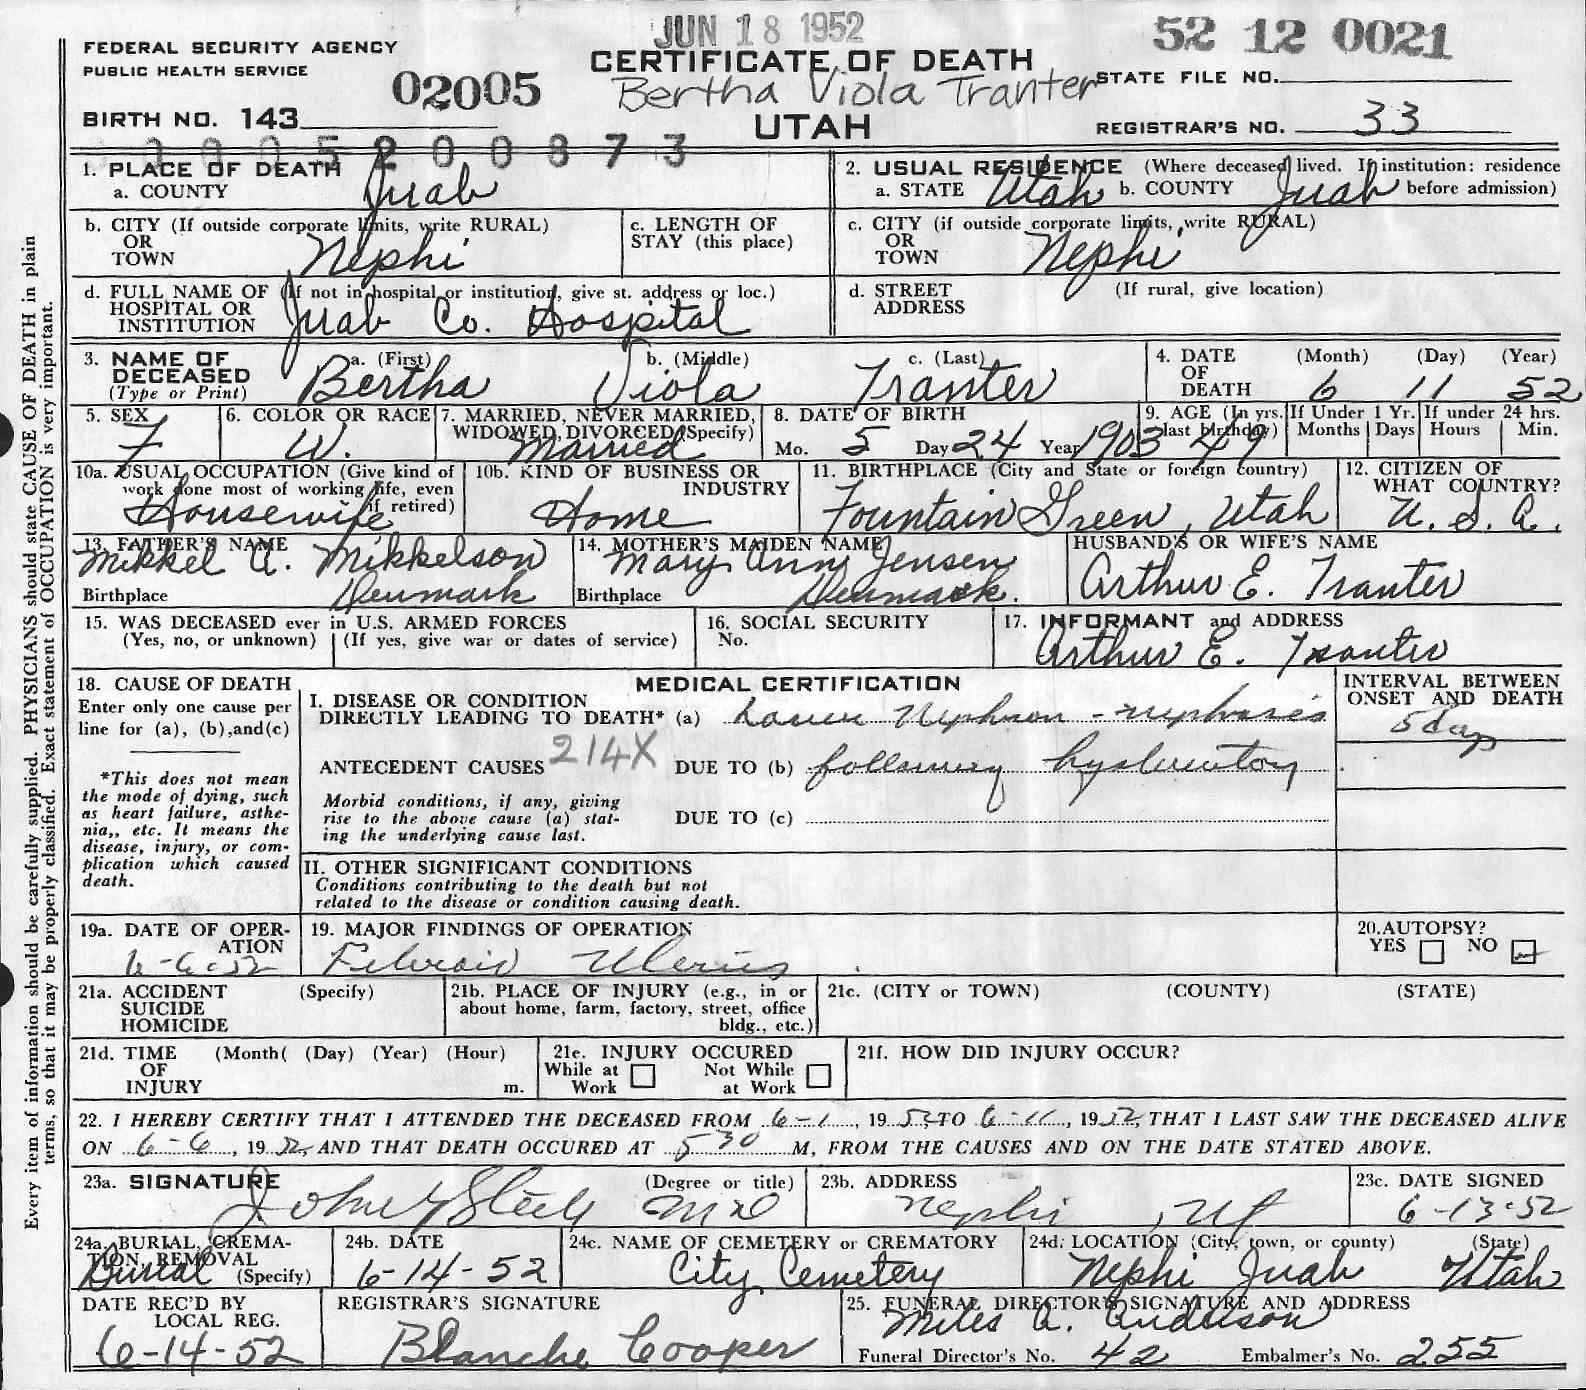 JUN 18 1952
52 12 0021
FEDERAL SECURITY AGENCY
PUBLIC HEALTH SERVICE
02005
CERTIFICATE OF DEATH
Bertha Viola Tranter
STATE FILE NO.
BIRTH NO. 143
UTAH
REGISTRAR'S NO. 33
1. PLACE OF DEATH
a. COUNTY Juab
2. USUAL RESIDENCE (Where deceased lived. If institution: residence before admission)
a. STATE Utah b. COUNTY Juab
b. CITY (If outside corporate limits, write RURAL)
OR
TOWN Nephi
c. LENGTH OF
STAY (this place)
c. CITY (if outside corporate limits, write RURAL)
OR
TOWN Nephi
d. FULL NAME OF (If not in hospital or institution, give st. address or loc.)
HOSPITAL OR
INSTITUTION Juab Co. Hospital
d. STREET
ADDRESS
(If rural, give location)
3. NAME OF
DECEASED
(Type or Print)
a. (First) Bertha
b. (Middle) Viola
c. (Last) Tranter
4. DATE
OF
DEATH
(Month) (Day) (Year)
6 11 52
5. SEX
F
6. COLOR OR RACE
W.
7. MARRIED, NEVER MARRIED,
WIDOWED, DIVORCED (Specify)
Married
8. DATE OF BIRTH
Mo. 5 Day 24 Year 1903
9. AGE (In yrs.
last birthday)
49
If Under 1 Yr.
Months Days
If under 24 hrs.
Hours Min.
10a. USUAL OCCUPATION (Give kind of
work done most of working life, even
if retired)
Housewife
10b. KIND OF BUSINESS OR
INDUSTRY
Home
11. BIRTHPLACE (City and State or foreign country)
Fountain Green, Utah
12. CITIZEN OF
WHAT COUNTRY?
U. S. A.
13. FATHER'S NAME
Mikkel A. Mikkelson
Birthplace Denmark
14. MOTHER'S MAIDEN NAME
Mary Ann Jensen
Birthplace Denmark.
HUSBAND'S OR WIFE'S NAME
Arthur E. Tranter
15. WAS DECEASED ever in U.S. ARMED FORCES
(Yes, no, or unknown) (If yes, give war or dates of service)
16. SOCIAL SECURITY
No.
17. INFORMANT and ADDRESS
Arthur E. Tranter
18. CAUSE OF DEATH
Enter only one cause per
line for (a), (b),and(c)
*This does not mean
the mode of dying, such
as heart failure, asthe-
nia,, etc. It means the
disease, injury, or com-
plication which caused
death.
MEDICAL CERTIFICATION
I. DISEASE OR CONDITION
DIRECTLY LEADING TO DEATH* (a) Lower Nephron - nephrosis
214X
ANTECEDENT CAUSES DUE TO (b) following
Morbid conditions, if any, giving
rise to the above cause (a) stat-
ing the underlying cause last.
DUE TO (c)
INTERVAL BETWEEN
ONSET AND DEATH
5 days
II. OTHER SIGNIFICANT CONDITIONS
Conditions contributing to the death but not
related to the disease or condition causing death.
19a. DATE OF OPER-
ATION
6-6-52
19. MAJOR FINDINGS OF OPERATION
20.AUTOPSY?
YES NO
21a. ACCIDENT
SUICIDE
HOMICIDE
(Specify)
21b. PLACE OF INJURY (e.g., in or
about home, farm, factory, street, office
bldg., etc.)
21c. (CITY or TOWN) (COUNTY) (STATE)
21d. TIME
OF
INJURY
(Month( (Day) (Year) (Hour)
m.
21e. INJURY OCCURED
While at
Work
Not While
at Work
21f. HOW DID INJURY OCCUR?
22. I HEREBY CERTIFY THAT I ATTENDED THE DECEASED FROM 6-1, 1952 TO 6-11, 1952, THAT I LAST SAW THE DECEASED ALIVE
ON 6-6, 1952, AND THAT DEATH OCCURED AT 5 30 M, FROM THE CAUSES AND ON THE DATE STATED ABOVE.
23a. SIGNATURE (Degree or title)
John Steele MD
23b. ADDRESS
Nephi, Ut
23c. DATE SIGNED
6-13-52
24a. BURIAL, CREMA-
TION, REMOVAL
(Specify)
Burial
24b. DATE
6-14-52
24c. NAME OF CEMETERY or CREMATORY
City Cemetery
24d. LOCATION (City, town, or county) (State)
Nephi Juab Utah
DATE REC'D BY
LOCAL REG.
6-14-52
REGISTRAR'S SIGNATURE
Blanche Cooper
25. FUNERAL DIRECTOR'S SIGNATURE AND ADDRESS
Miles A. Anderson
Funeral Director's No. 42 Embalmer's No. 255
Every item of information should be carefully supplied. PHYSICIANS should state CAUSE OF DEATH in plain
terms, so that it may be properly classified. Exact statement of OCCUPATION is very important.